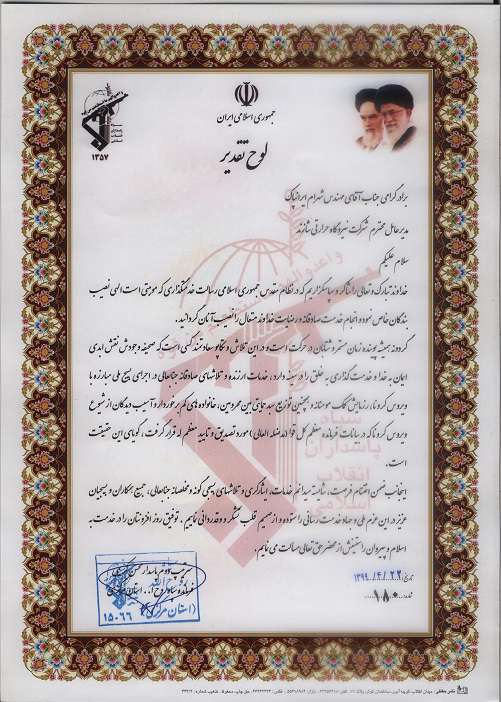 جمهوری اسلامی ایران
لوح تقدیر
۱۳۵۷
برادر گرامی جناب آقای مهندس شهرام ایرانپاک
مدیرعامل محترم شرکت نیروگاه حرارتی شازند
سلام علیکم
خداوند تبارک و تعالی را شاکر و سپاسگزاریم که در نظام مقدس جمهوری اسلامی رسالت خدمتگذاری که موهبتی است الهی نصیب
بندگان خاص نمود و انجام خدمت صادقانه و رضایت خداوند متعال را نصیب آنان گردانید.
گردونه همیشه پوینده زمان مستمر و شتابان در حرکت است و در این تلاش و تکاپو سعادتمند کسی است که صحیفه وجودش نقش ابدی
ایمان به خدا و خدمت گذاری به خلق را در سینه دارد، خدمات ارزنده و تلاشهای صادقانه جنابعالی در اجرای بسیج ملی مبارزه با
ویروس کرونا، رزمایش کمک مومنانه و همچنین توزیع سبد حمایتی بین محرومین، خانواده های کم برخوردار و آسیب دیدگان از شیوع
ویروس کرونا که در بیانات فرمانده معظم کل قوا (مدظله العالی) مورد تصدیق و تایید معظم له قرار گرفت، گویای این حقیقت
است.
اینجانب ضمن اغتنام فرصت، شایسته میدانم خدمات، ایثارگری و تلاشهای بسیجی گونه و مخلصانه جنابعالی، جمیع همکاران و بسیجیان
عزیز در این عزم ملی و جهاد خدمت رسانی را ستوده و از صمیم قلب تشکر و قدردانی نمایم. توفیق روز افزونتان را در خدمت به
اسلام و پیروان راستینش از محضر حق تعالی مسالت می نمایم.
تاریخ: ۱۳۹۹/۴/۲۲
شماره: ۱۸۰
(استان مرکزی)
۱۵۰۶۶
سپاه
پاسداران
انقلاب
اسلامی